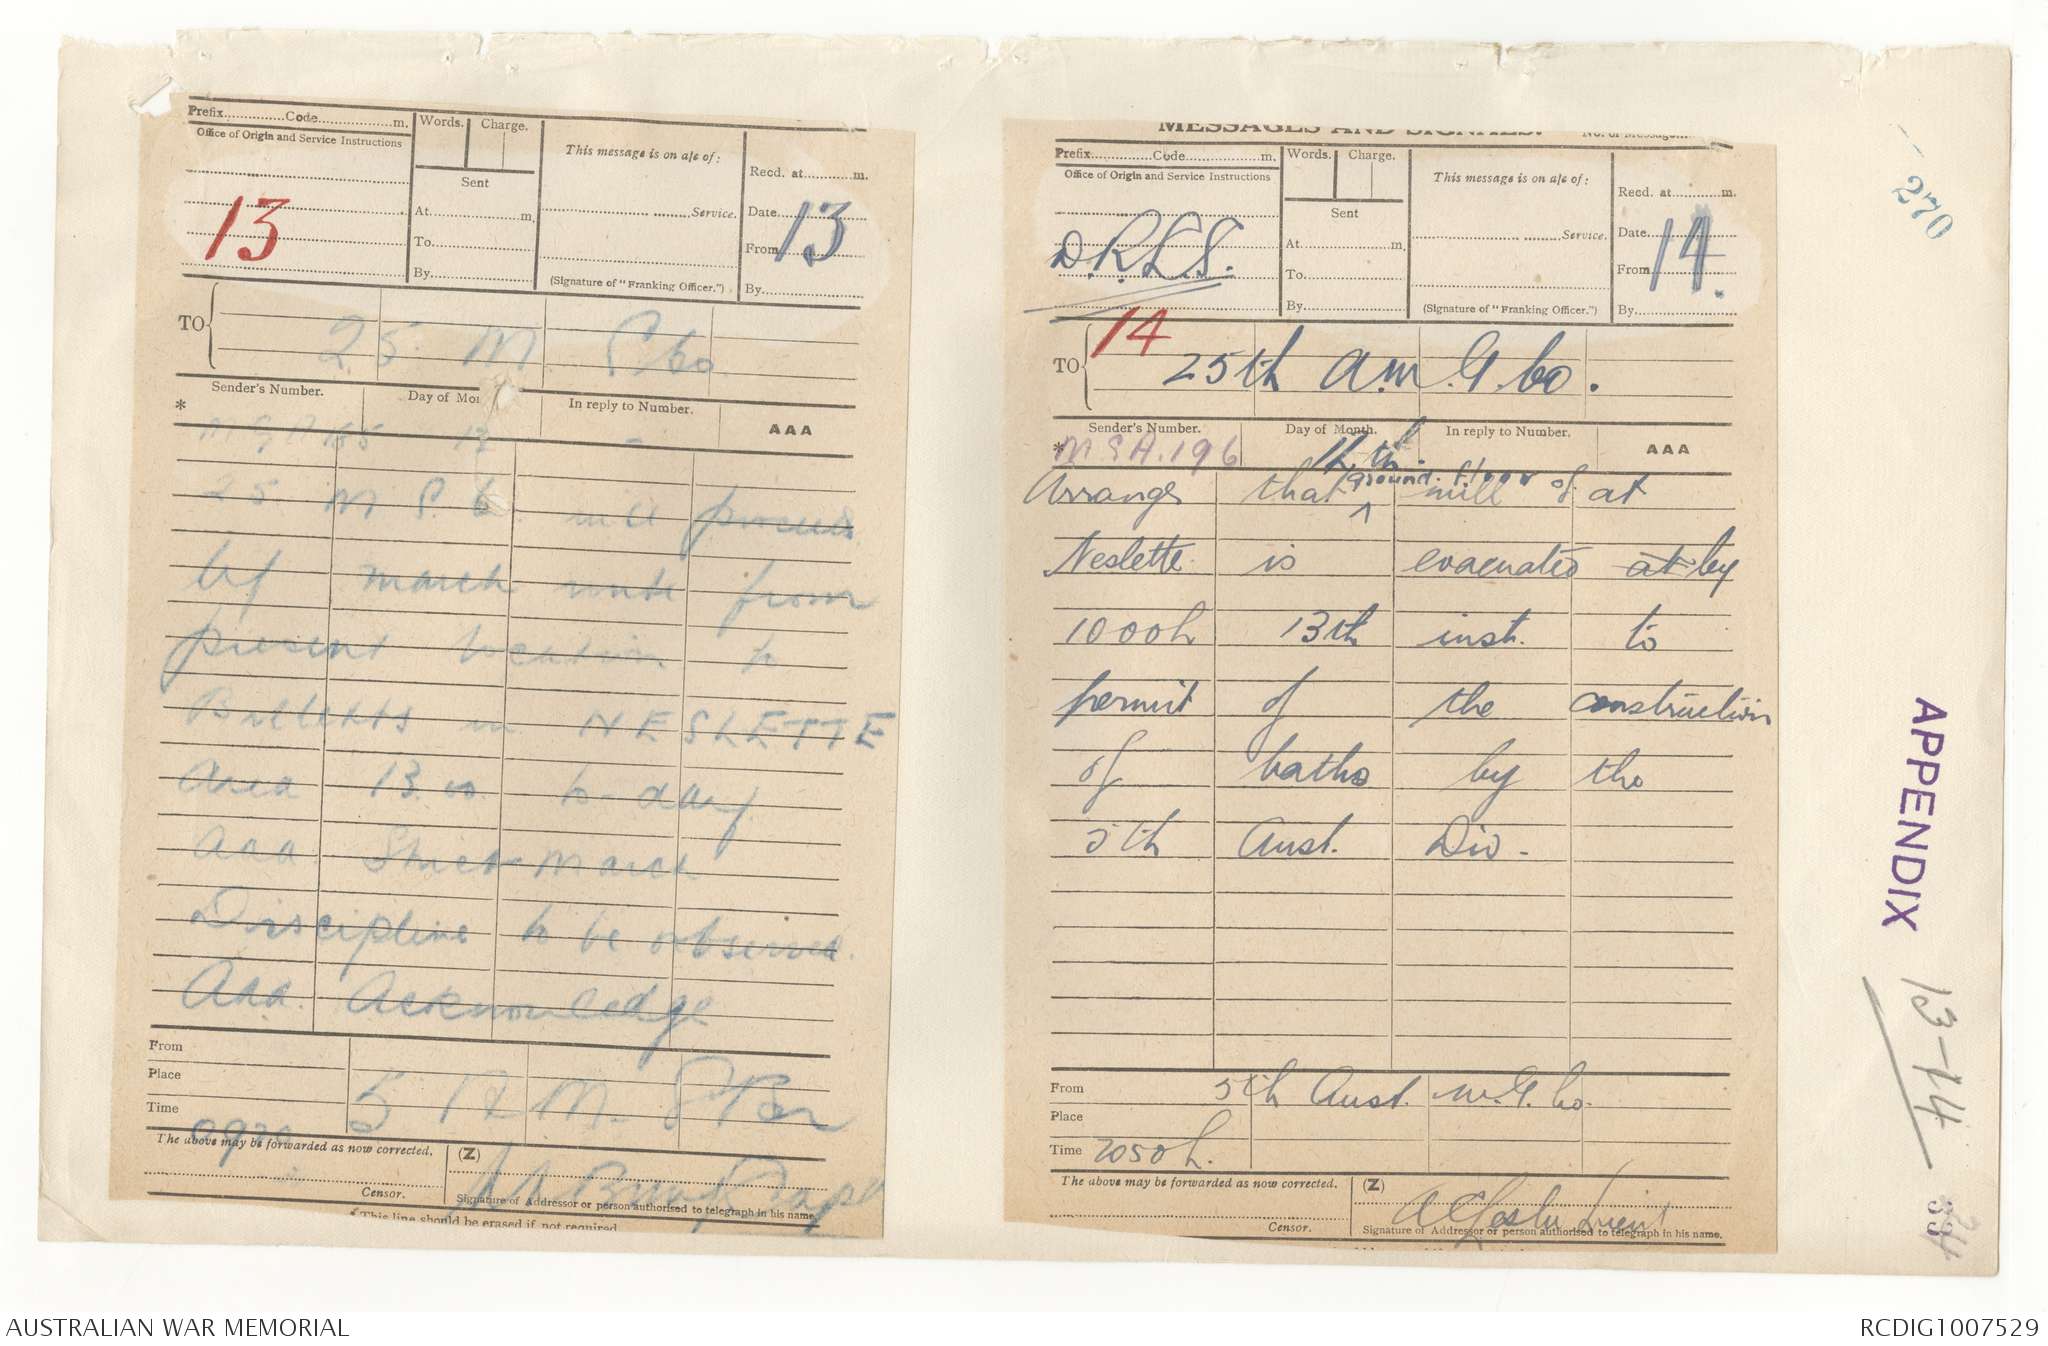 Prefix............Code..................m.
Office of Origin and Service Instructions
Words. Charge.
Sent
At....................m.
To....................
By....................
This message is on a/c of:
Service.
(Signature of "Franking Officer.")
Recd. at..........m.
Date
From
By
13
13
TO 25 M G Co.
Sender's Number. Day of Mo In reply to Number. AAA
* M G A 165 13 -
25 M G Co. will proceed
by march route from
present location to
Billetts in NESLETTE
Area 13.00. to-day
aaa Strict march
Discipline to be observed.
Aaa. Acknowledge
From
Place
Time
The above may be forwarded as now corrected. (Z)
Censor.
Signature of Addressor or person authorised to telegraph in his name
* This line should be erased if not required
MESSAGES AND SIGNALS. No. of Message
Prefix............Code..................m.
Office of Origin and Service Instructions
Words. Charge.
Sent
At....................m.
To....................
By....................
This message is on a/c of:
Service.
(Signature of "Franking Officer.")
Recd. at..........m.
Date
From
By
D.R.L.S.
14.
14
TO 25th A.M.G. Co.
Sender's Number. Day of Month. In reply to Number. AAA
* M.G.A. 196 12th.
Arrange that ground floor of mill at
Neslette is evacuated at by
1000h 13th inst. to
permit of the construction
of baths by the
5th Aust. Div.
From 5th Aust. M.G. Co.
Place
Time 2050h.
The above may be forwarded as now corrected. (Z)
Censor.
Signature of Addressor or person authorised to telegraph in his name.
270
APPENDIX 13-14
334
AUSTRALIAN WAR MEMORIAL
RCDIG1007529